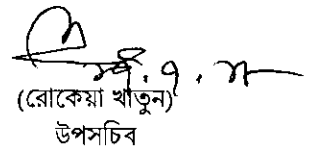 (রোকেয়া খাতুন)
উপসচিব